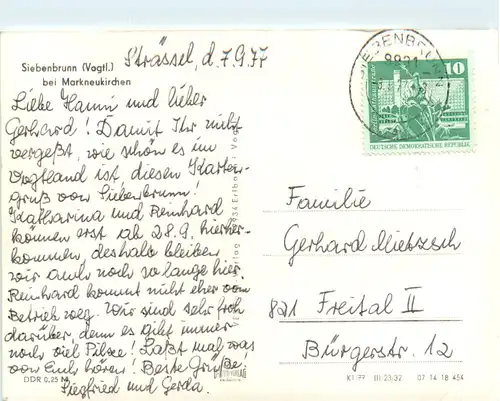 Siebenbrunn (Vogtl.)
bei Markneukirchen
Strässel, d. 7.9.77
Liebe Hanni und lieber
Gerhard! Damit Ihr nicht
vergeßt, wie schön es im
Vogtland ist diesen Karten-
gruß von Siebenbrunn!
Katharina und Reinhard
können erst ab 28.9. hierher-
kommen, deshalb bleiben
wir auch noch so lange hier.
Reinhard kommt nicht eher vom
Betrieb weg. Wir sind sehr froh
darüber, denn es gibt immer
noch viel Pilze! Laßt mal was
von Euch hören! Beste Grüße,
Siegfried und Gerda.
DDR 0,25 M
10
DEUTSCHE DEMOKRATISCHE REPUBLIK
Familie
Gerhard Mietzsch
821 Freital II
Bürgerstr. 12
K1/77 III/23/32 07 14 18 454